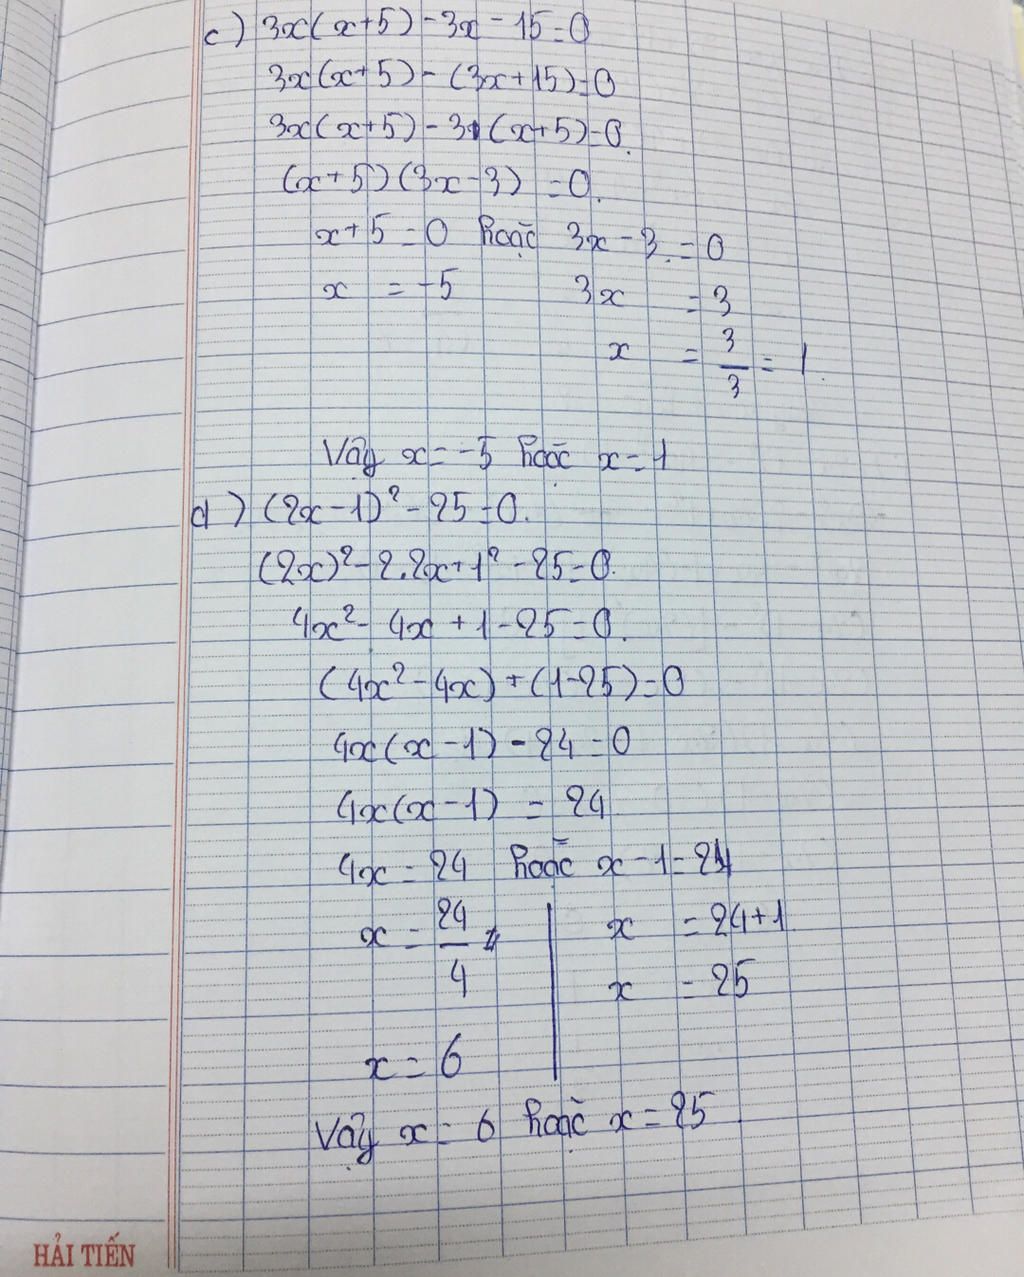 c) 3x(x+5) - 3x - 15 = 0
3x(x+5) - (3x+15) = 0
3x(x+5) - 3(x+5) = 0.
(x+5)(3x-3) = 0.
x+5 = 0 hoặc 3x - 3 = 0
x = -5 3x = 3
x = 3/3 = 1
Vậy x = -5 hoặc x = 1
d) (2x-1)² - 25 = 0.
(2x)² - 2.2x + 1² - 25 = 0.
4x² - 4x + 1 - 25 = 0.
(4x² - 4x) + (1-25) = 0
4x(x-1) - 24 = 0
4x(x-1) = 24
4x = 24 hoặc x - 1 = 24
x = 24/4 x = 24+1
x = 25
x = 6
Vậy x = 6 hoặc x = 25
HẢI TIẾN